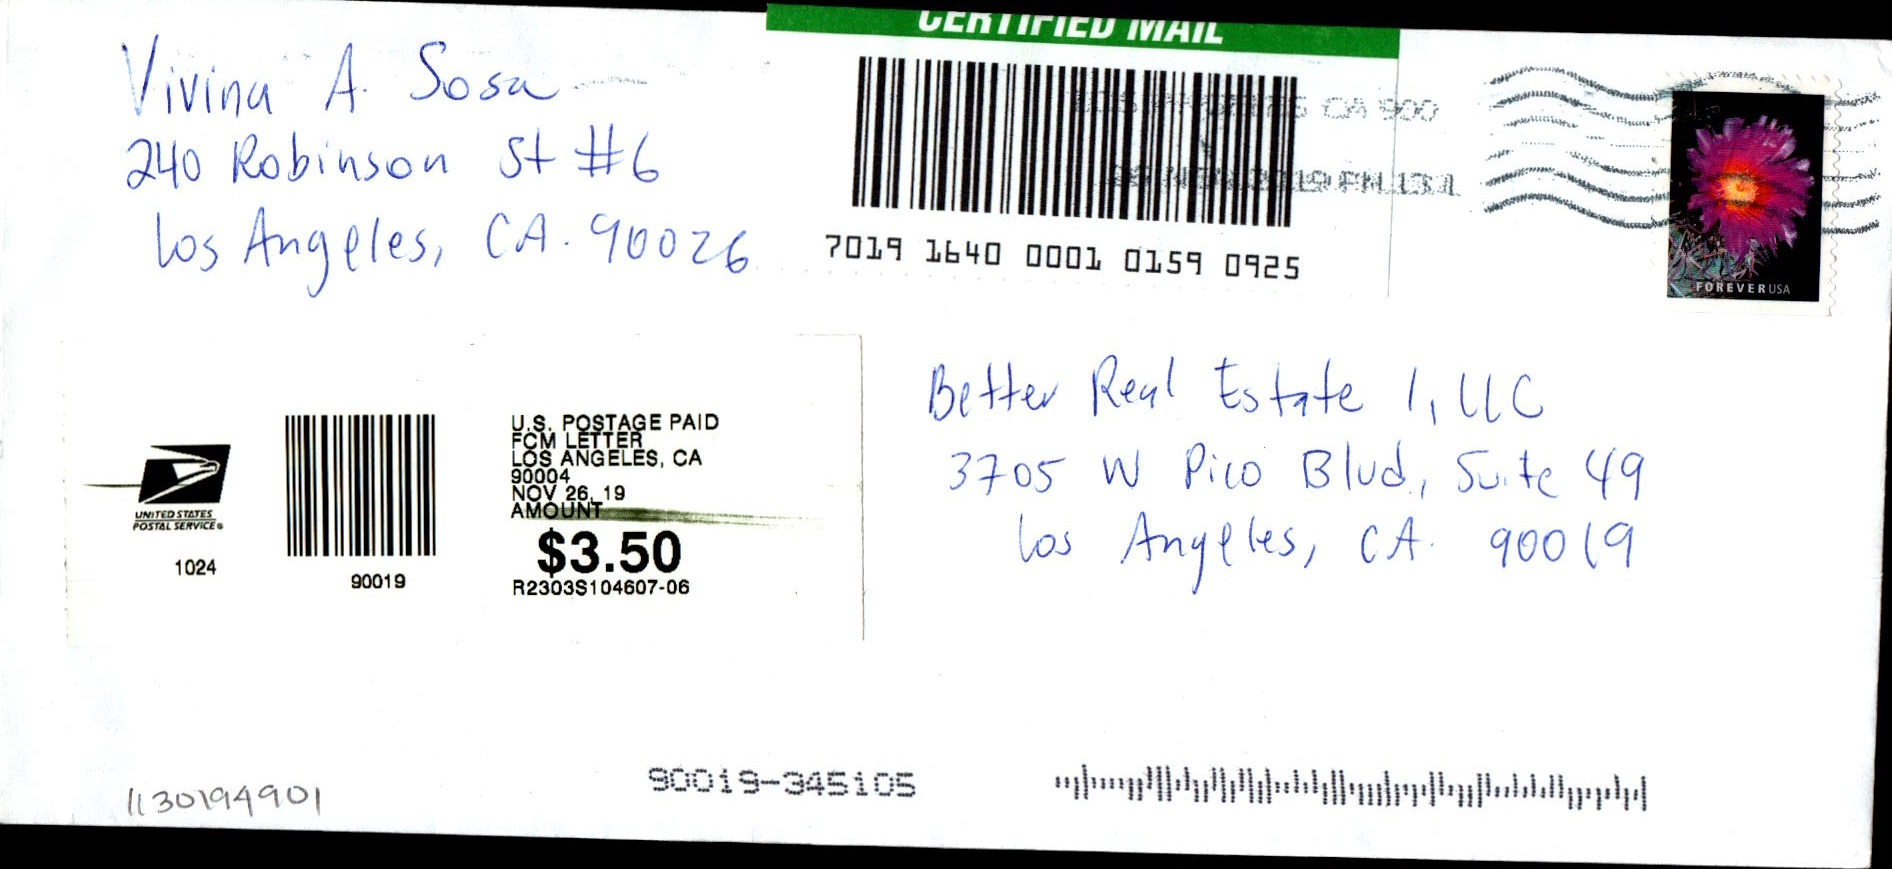 CERTIFIED MAIL
Vivina A. Sosa
240 Robinson St #6
Los Angeles, CA. 90026
CA 900
2019 PM 13 1
7019 1640 0001 0159 0925
FOREVER USA
UNITED STATES
POSTAL SERVICE®
1024
90019
U.S. POSTAGE PAID
FCM LETTER
LOS ANGELES, CA
90004
NOV 26, 19
AMOUNT
$3.50
R2303S104607-06
Better Real Estate 1, LLC
3705 W Pico Blvd., Suite 49
Los Angeles, CA. 90019
90019-345105
1130194901